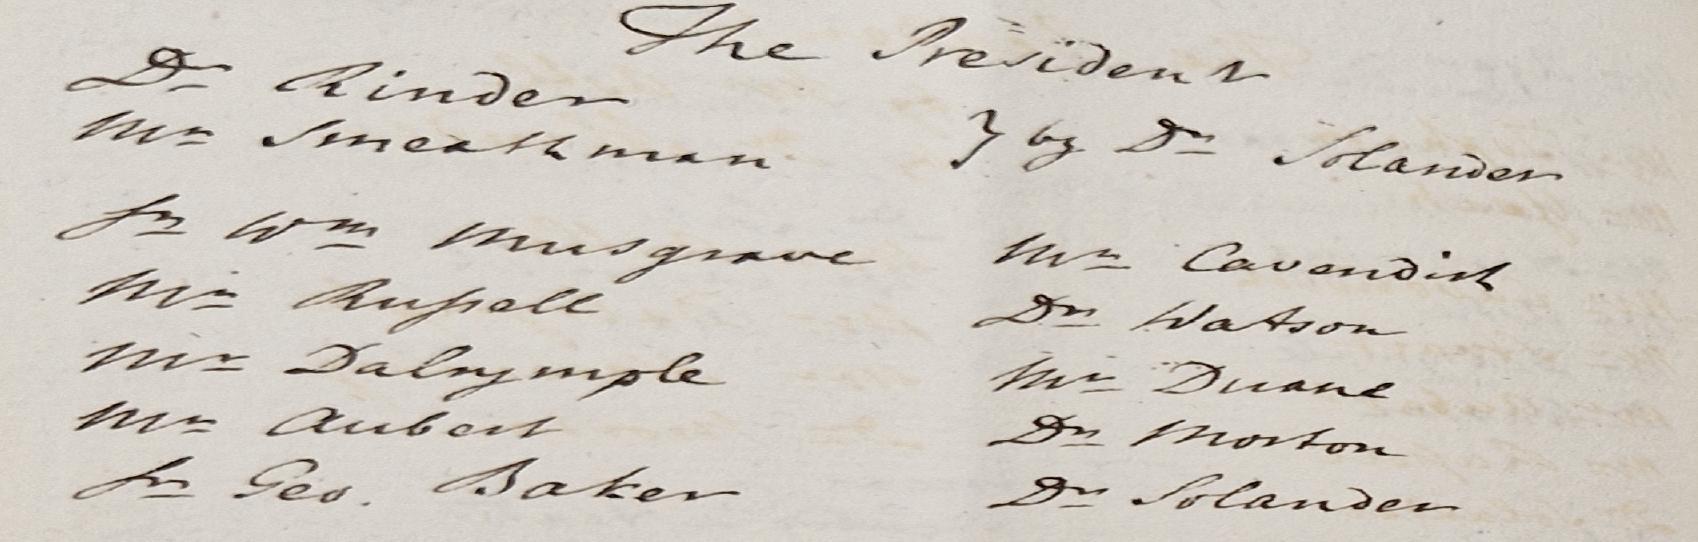 The President
Dr Rinder
Mr Smeathman } by Dr Solander
Sr Wm Musgrave Mr Cavendish
Mr Russell Dr Watson
Mr Dalrymple Mr Duane
Mr Aubert Dr Morton
Sr Geo. Baker Dr Solander